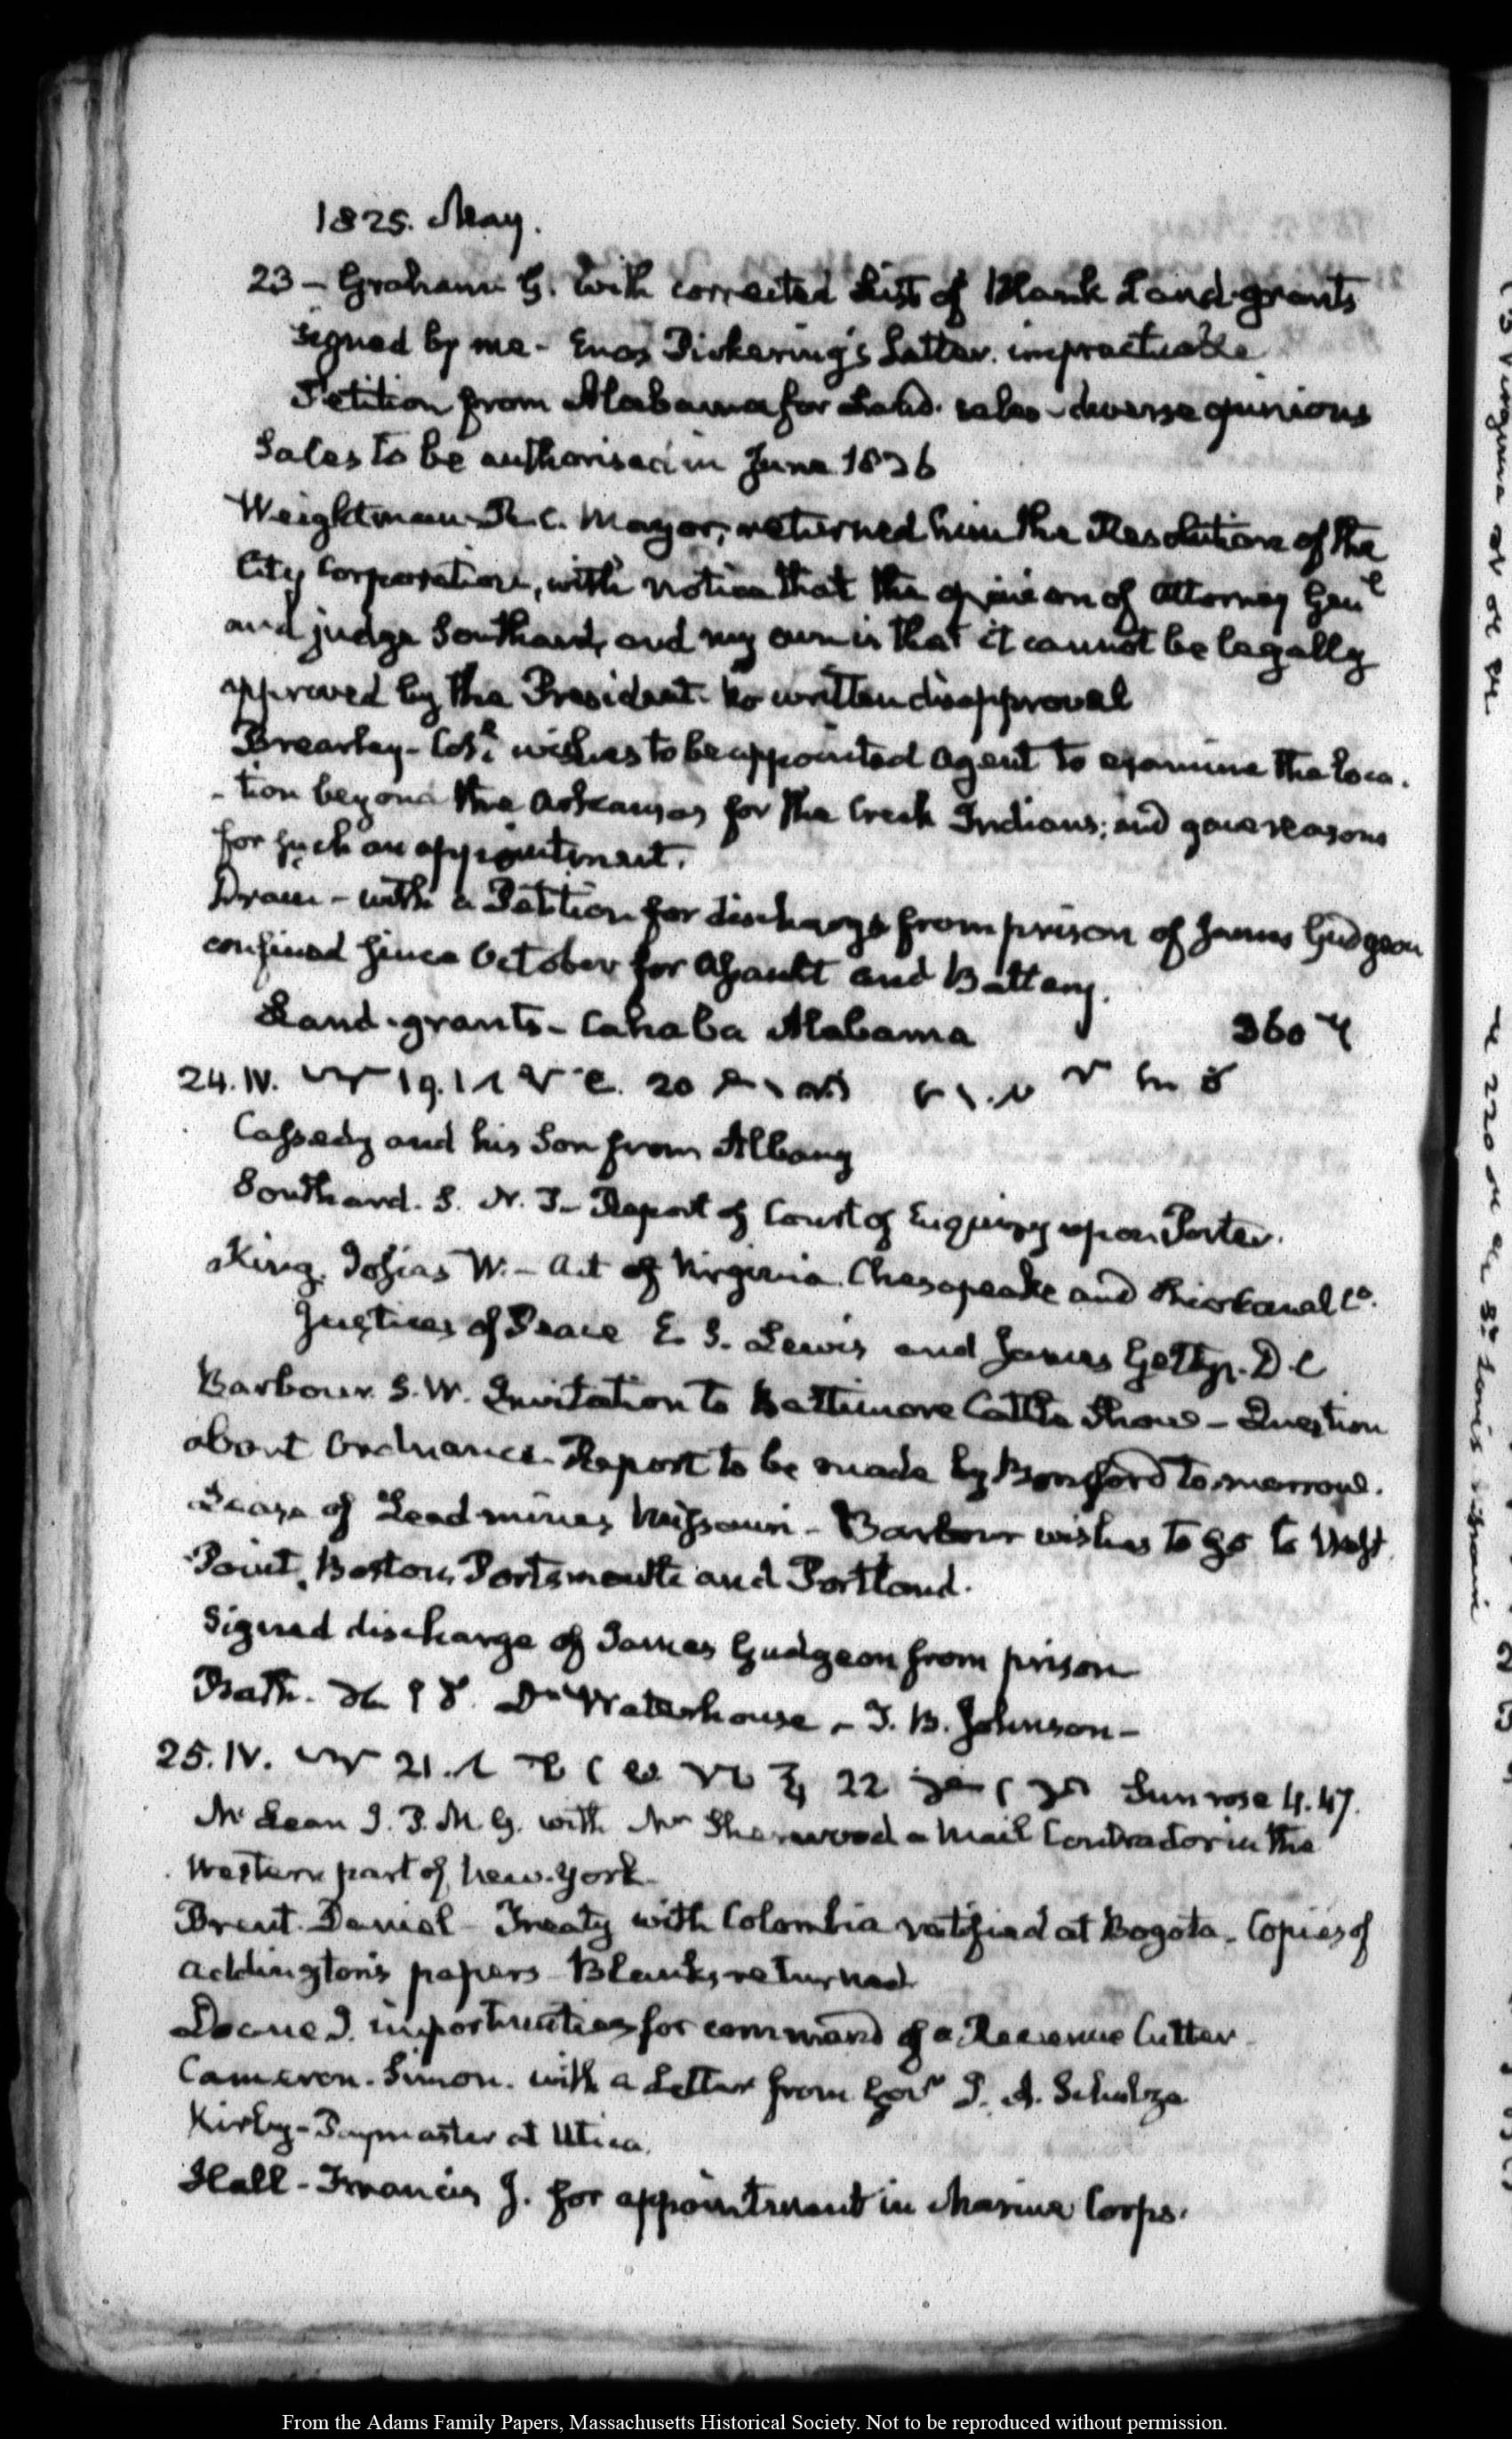 1825. May.
23 - Graham G. with corrected List of Blank Land-grants
signed by me - Enos Pickering's Letter. impracticable
Petition from Alabama for Land. sales - diverse opinions
Sales to be authorised in June 1826
Weightman R. C. Mayor; returned him the Resolution of the
City Corporation, with notice that the opinion of Attorney Genl
and judge Southard, and my own is that it cannot be legally
approved by the President. No written disapproval
Brearley - Coll. wishes to be appointed Agent to examine the loca-
-tion beyond the Arkansas for the Creek Indians; and gave reasons
for such an appointment.
- with a Petition for discharge from prison of James Gudgeon
confined since October for Assault and Battery.
Land-grants - Cahaba Alabama 360
24. IV. 19. 20
Cassedy and his Son from Albany
Southard. S. N. D - Report of Court of Enquiry upon Porter.
King. Josias W. - Act of Virginia. Chesapeake and Ohio Canal Co.
Justices of Peace E. S. Lewis and James Getty. D. C
Barbour. S. W. Invitation to Baltimore Cattle Show - Question
about Ordnance. Report to be made by Bomford to-morrow.
Lease of Lead-mines Missouri - Barbour wishes to go to West
Point, Boston, Portsmouth and Portland.
Signed discharge of James Gudgeon from prison
Bath. Dr Waterhouse - T. B. Johnson -
25. IV. 21. 22 Sun rose 4.47.
McLean J. P. M. G. with Mr Sherwood a Mail Contractor in the
Western part of New-York.
Brent. Daniel - Treaty with Colombia ratified at Bogota. Copies of
Addington's papers - Blanks returned
Doane J. importunities for command of a Revenue Cutter
Cameron. Simon. with a Letter from Govr J. A. Schulze
Kirby - Paymaster at Utica.
Hall - Francis J. for appointment in Marine Corps.
From the Adams Family Papers, Massachusetts Historical Society. Not to be reproduced without permission.